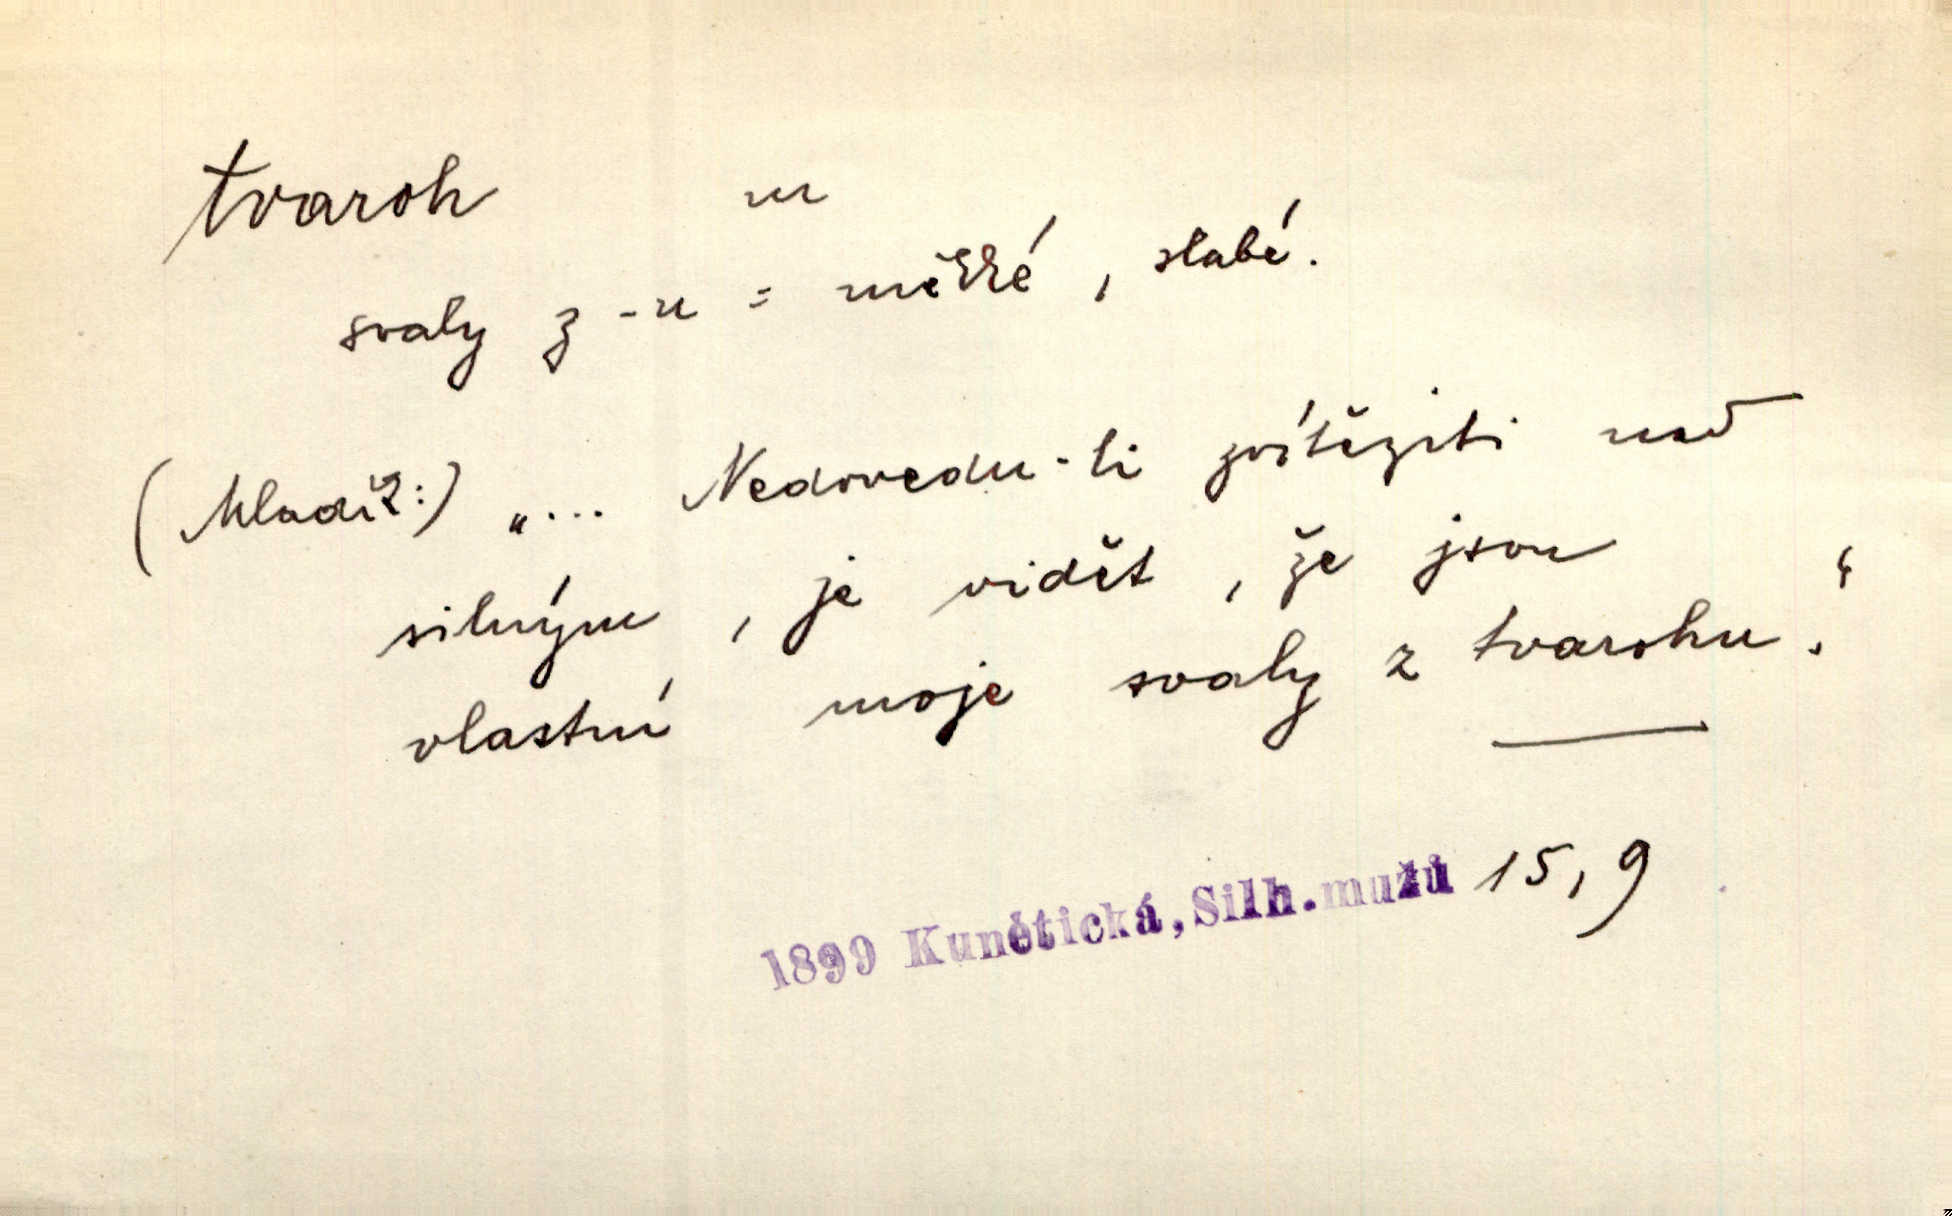 tvaroh m
svaly z -u = měkké, slabé.
(Mladík:) „... Nedovedu-li zvítěziti nad
silným, je vidět, že jsou
vlastní moje svaly z tvarohu.“
1899 Kunětická, Silh. mužů 15, 9